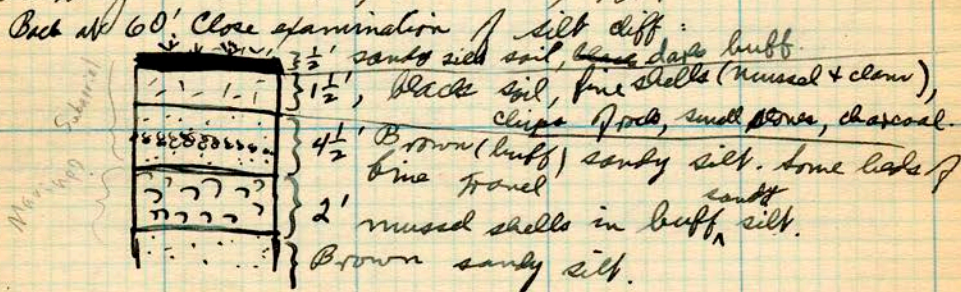 Back at 60'. Close examination of silt cliff:
½' sandy silt soil, dark buff.
1½', black soil, fine shells (mussel & clam),
chips of rock, small stones, charcoal.
4½' Brown (buff) sandy silt. Some beds of
fine gravel
2' mussel shells in buff sandy silt.
Brown sandy silt.
Subaerial